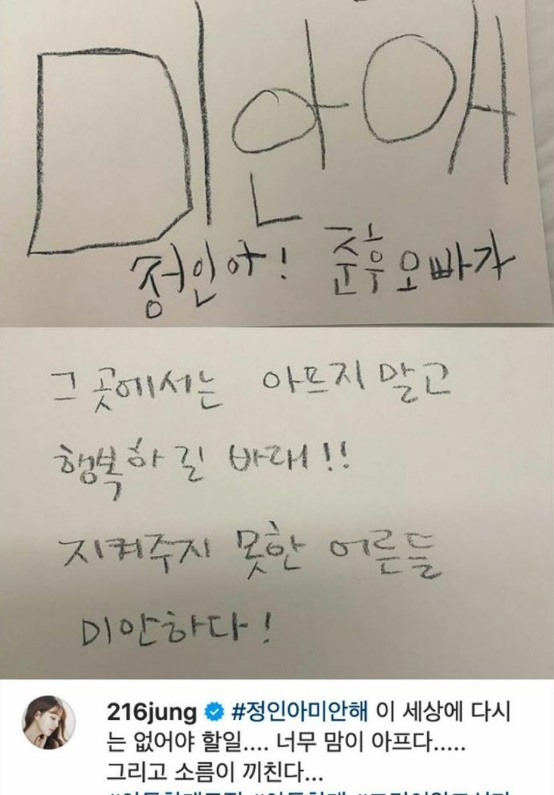 미안애
정인아! 준우오빠가
그곳에서는 아프지말고
행복하길 바래!!
지켜주지 못한 어른들
미안하다!
216jung #정인아미안해 이 세상에 다시
는 없어야 할일.... 너무 맘이 아프다.....
그리고 소름이 끼친다...